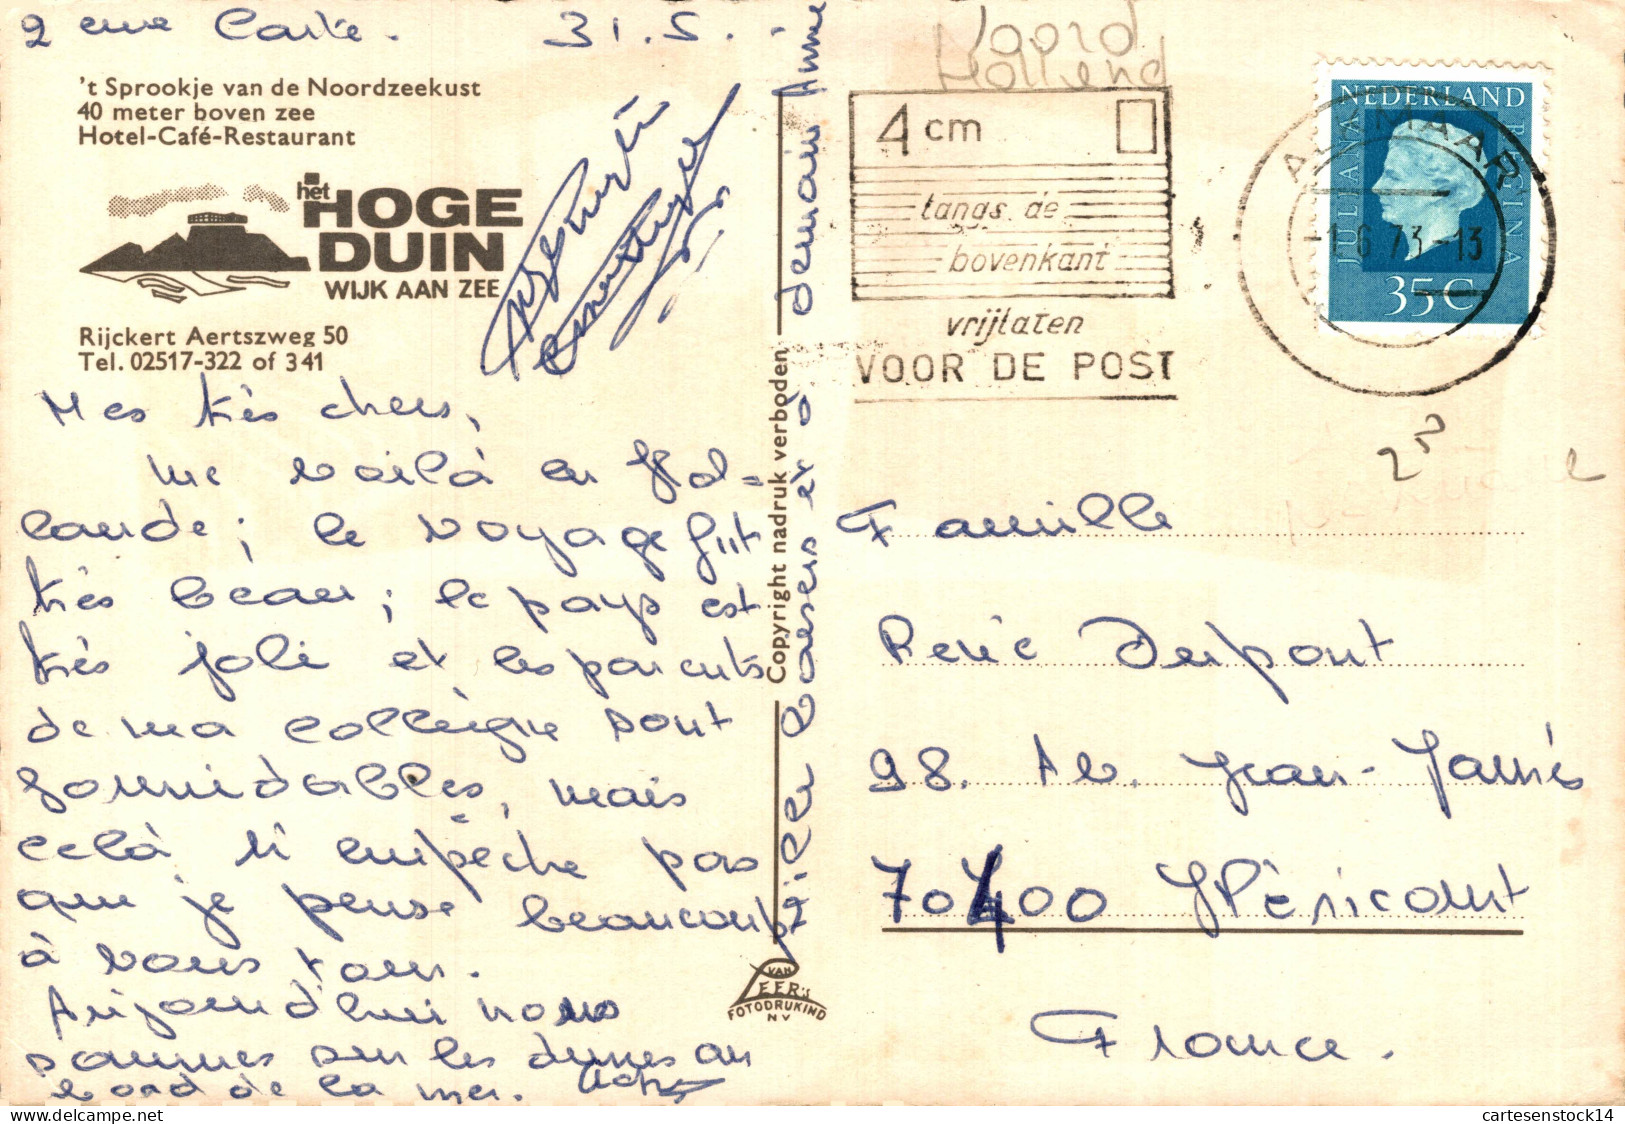 2 eme Carte. 31.5.
't Sprookje van de Noordzeekust
40 meter boven zee
Hotel-Café-Restaurant
het HOGE
DUIN
WIJK AAN ZEE
Rijckert Aertszweg 50
Tel. 02517-322 of 341
Mes très chers,
me voilà en Hol=
lande ; le voyage fut
très beau ; le pays est
très joli et les parents
de ma collègue sont
formidables, mais
celà n'empêche pas
que je pense beaucoup
à vous tous.
Aujourd'hui nous
sommes sur les dunes au
bord de la mer.
Mille baisers et à demain Anne
Copyright nadruk verboden
VAN
LEER's
FOTODRUKIND
NV
Noord
Holland
4 cm
langs de
bovenkant
vrijlaten
VOOR DE POST
NEDERLAND
JULIANA REGINA
35 C
ALKMAAR
-1.6.73-13
Famille
René Dupont
98. Av. Jean-Jaurés
70400 Héricourt
France.
cartesenstock14